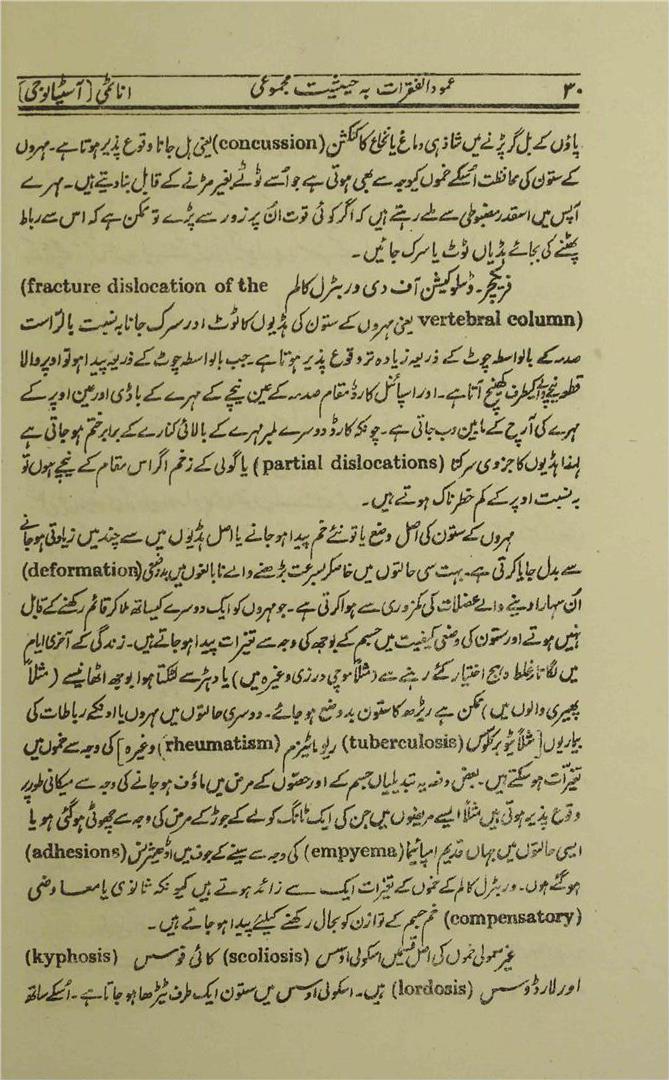 ۳۰ عمود الفقرات بہ حیثیت مجموعی اناٹمی [آسٹیالوجی]
پاؤں کے بل گر پڑنے میں شاذ ہی دماغ یا نخاع کا کنکشن (concussion) یعنی ہل جانا وقوع پذیر ہوتا ہے۔ مہروں
کے ستون کی محافظت اسکے خموں کیوجہ سے بھی ہوتی ہے جو اسے ٹوٹے بغیر مڑنے کے قابل بنا دیتے ہیں۔ مہرے
آپس میں اسقدر مضبوطی سے ملے رہتے ہیں کہ اگر کوئی قوت ان پر زور سے پڑے تو ممکن ہے کہ اس سے رباط
پھٹنے کی بجائے ہڈیاں ٹوٹ یا سرک جائیں۔
فریکچر۔ ڈسلوکیشن آف دی ورٹبرل کالم (fracture dislocation of the
vertebral column) یعنی مہروں کے ستون کی ہڈیوں کا ٹوٹ اور سرک جانا بہ نسبت بالراست
صدمہ کے بالواسطہ چوٹ کے ذریعہ زیادہ تر وقوع پذیر ہوتا ہے۔ جب بالواسطہ چوٹ کے ذریعہ پیدا ہو تو اوپر والا
قطعہ نیچے کیطرف کھنچ آتا ہے۔ اور اسپائنل کارڈ مقام صدمہ کے عین نیچے کے مہرے کے باڈی اور عین اوپر کے
مہرے کی آرچ کے مابین دب جاتی ہے۔ چونکہ کارڈ دوسرے لمبر مہرے کے بالائی کنارے کے برابر ختم ہو جاتی ہے
لہذا ہڈیوں کا جزوی سرکنا (partial dislocations) یا گولی کے زخم اگر اس مقام کے نیچے ہوں تو
بہ نسبت اوپر کے کم خطرناک ہوتے ہیں۔
مہروں کے ستون کی اصل وضع یا تو نئے خم پیدا ہو جانے یا اصل ہڈیوں میں سے چند میں زیادتی ہو جانے
سے بدل جایا کرتی ہے۔ بہت سی حالتوں میں خاصکر بسرعت بڑھنے والے نابالغوں میں بدوضعی (deformation)
ان سہارا دینے والے عضلات کی کمزوری سے ہوا کرتی ہے۔ جو مہروں کو ایک دوسرے کیساتھ ملا کر قائم رکھنے کے قابل
نہیں ہوتے اور ستون کی وضعی کیفیت میں جسم کے بوجھ کی وجہ سے تغیرات پیدا ہو جاتے ہیں۔ زندگی کے آخری ایام
میں لگاتار غلط وہج اختیار کئے رہنے سے (مثلاً موچی درزی وغیرہ میں) یا دہڑ سے لٹکتا ہوا بوجھ اٹھانیسے (مثلاً
پھیری والوں میں) ممکن ہے ریڑھ کا ستون بدوضع ہو جائے۔ دوسری حالتوں میں مہروں یا اونکے رباطات کی
بیماریوں [مثلاً ٹیوبرکلوسس (tuberculosis) ریوماٹیزم (rheumatism) وغیرہ] کی وجہ سے خموں میں
تغیرات ہو سکتے ہیں۔ بعض دفعہ یہ تبدیلیاں جسم کے اور حصوں کے مرض میں ماؤف ہو جانے کی وجہ سے میکانی طور پر
وقوع پذیر ہوتی ہیں مثلاً ایسے مریضوں میں جن کی ایک ٹانگ کولہے کے جوڑ کے مرض کی وجہ سے چھوٹی ہو گئی ہو یا
ایسی حالتوں میں جہاں قدیم امپائیما (empyema) کی وجہ سے سینے کے جوف میں اڈھیژنس (adhesions)
ہو گئے ہوں۔ ورٹبرل کالم کے خموں کے تغیرات ایک سے زائد ہوتے ہیں کیونکہ ثانوی یا معاوضی
(compensatory) خم جسم کے توازن کو بحال رکھنے کیلئے پیدا ہو جاتے ہیں۔
غیر معمولی خموں کی اصل قسمیں اسکولی اوسس (scoliosis) کائی فوسس (kyphosis)
اور لارڈوسس (lordosis) ہیں۔ اسکولی اوسس میں ستون ایک طرف ٹیڑھا ہو جاتا ہے۔ اسکے ساتھ